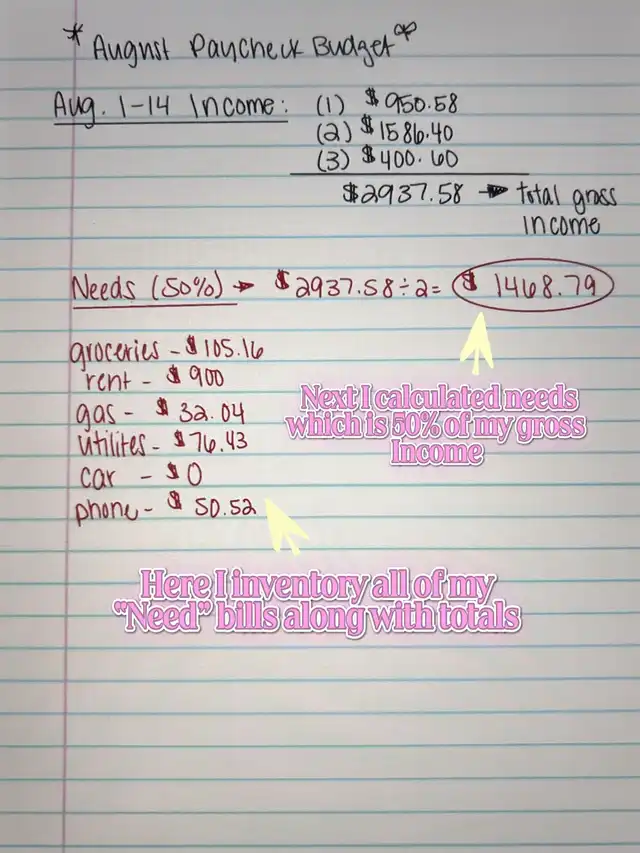 *August Paycheck Budget*
Aug. 1-14 Income: (1) $950.58
(2) $1586.40
(3) $400.60
$2937.58 → total gross
income
Needs (50%) → $2937.58÷2= $1468.79
groceries - $105.16
rent - $900
gas - $32.04
utilites - $76.43
car - $0
phone - $50.52
Next I calculated needs
which is 50% of my gross
Income
Here I inventory all of my
"Need" bills along with totals